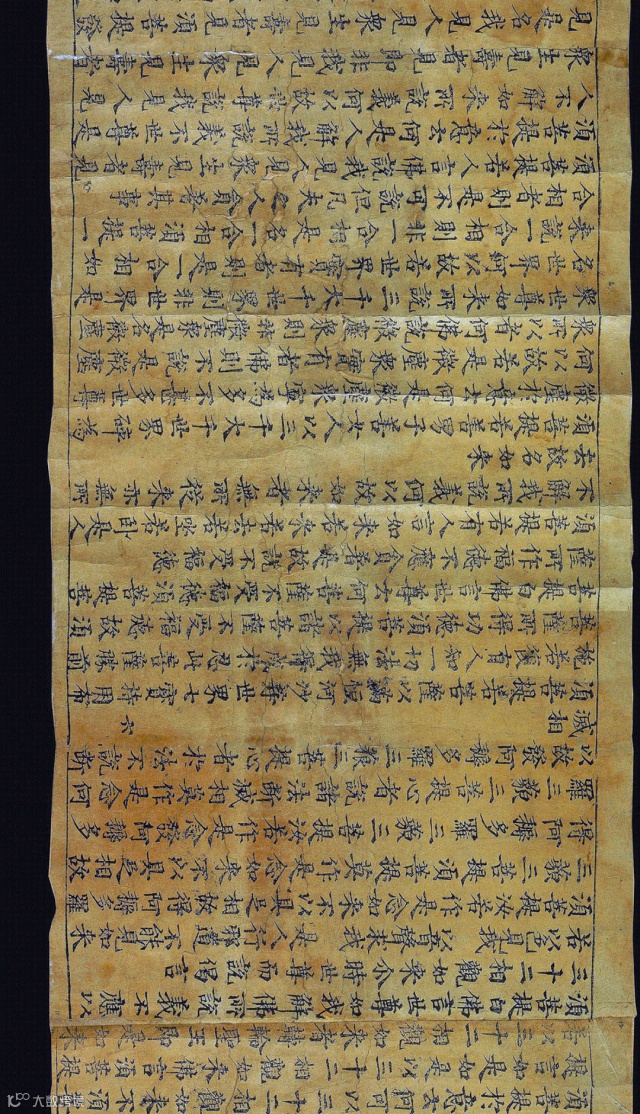 須菩提於意云何可以三十二相觀如來不須菩
提言如是如是以三十二相觀如來佛言須菩提
若以三十二相觀如來者轉輪聖王即是如來
須菩提白佛言世尊如我解佛所說義不應以
三十二相觀如來尒時世尊而說偈言
若以色見我以音聲求我是人行邪道不能見如來
須菩提汝若作是念如來不以具足相故得阿耨多羅
三藐三菩提須菩提莫作是念如來不以具足相故
得阿耨多羅三藐三菩提汝若作是念發阿耨多
羅三藐三菩提心者說諸法斷滅相莫作是念何
以故發阿耨多羅三藐三菩提心者於法不說斷
滅相
須菩提若菩薩以滿恒河沙等世界七寶持用布
施若復有人知一切法無我得成於忍此菩薩勝前
菩薩所得功德須菩提以諸菩薩不受福德故須
菩提白佛言世尊云何菩薩不受福德須菩提菩
薩所作福德不應貪著是故說不受福德
須菩提若有人言如來若來若去若坐若卧是人
不解我所說義何以故如來者無所從來亦無所
去故名如來
須菩提若善男子善女人以三千大千世界碎為
微塵於意云何是微塵衆寧為多不甚多世尊
何以故若是微塵衆實有者佛則不說是微塵
衆所以者何佛說微塵衆則非微塵衆是名微塵
衆世尊如來所說三千大千世界則非世界是
名世界何以故若世界實有者則是一合相如
來說一合相則非一合相是名一合相須菩提一
合相者則是不可說但凡夫之人貪著其事
須菩提若人言佛說我見人見衆生見壽者見
須菩提於意云何是人解我所說義不世尊是
人不解如來所說義何以故世尊說我見人見
衆生見壽者見即非我見人見衆生見壽者
見是名我見人見衆生見壽者見須菩提發